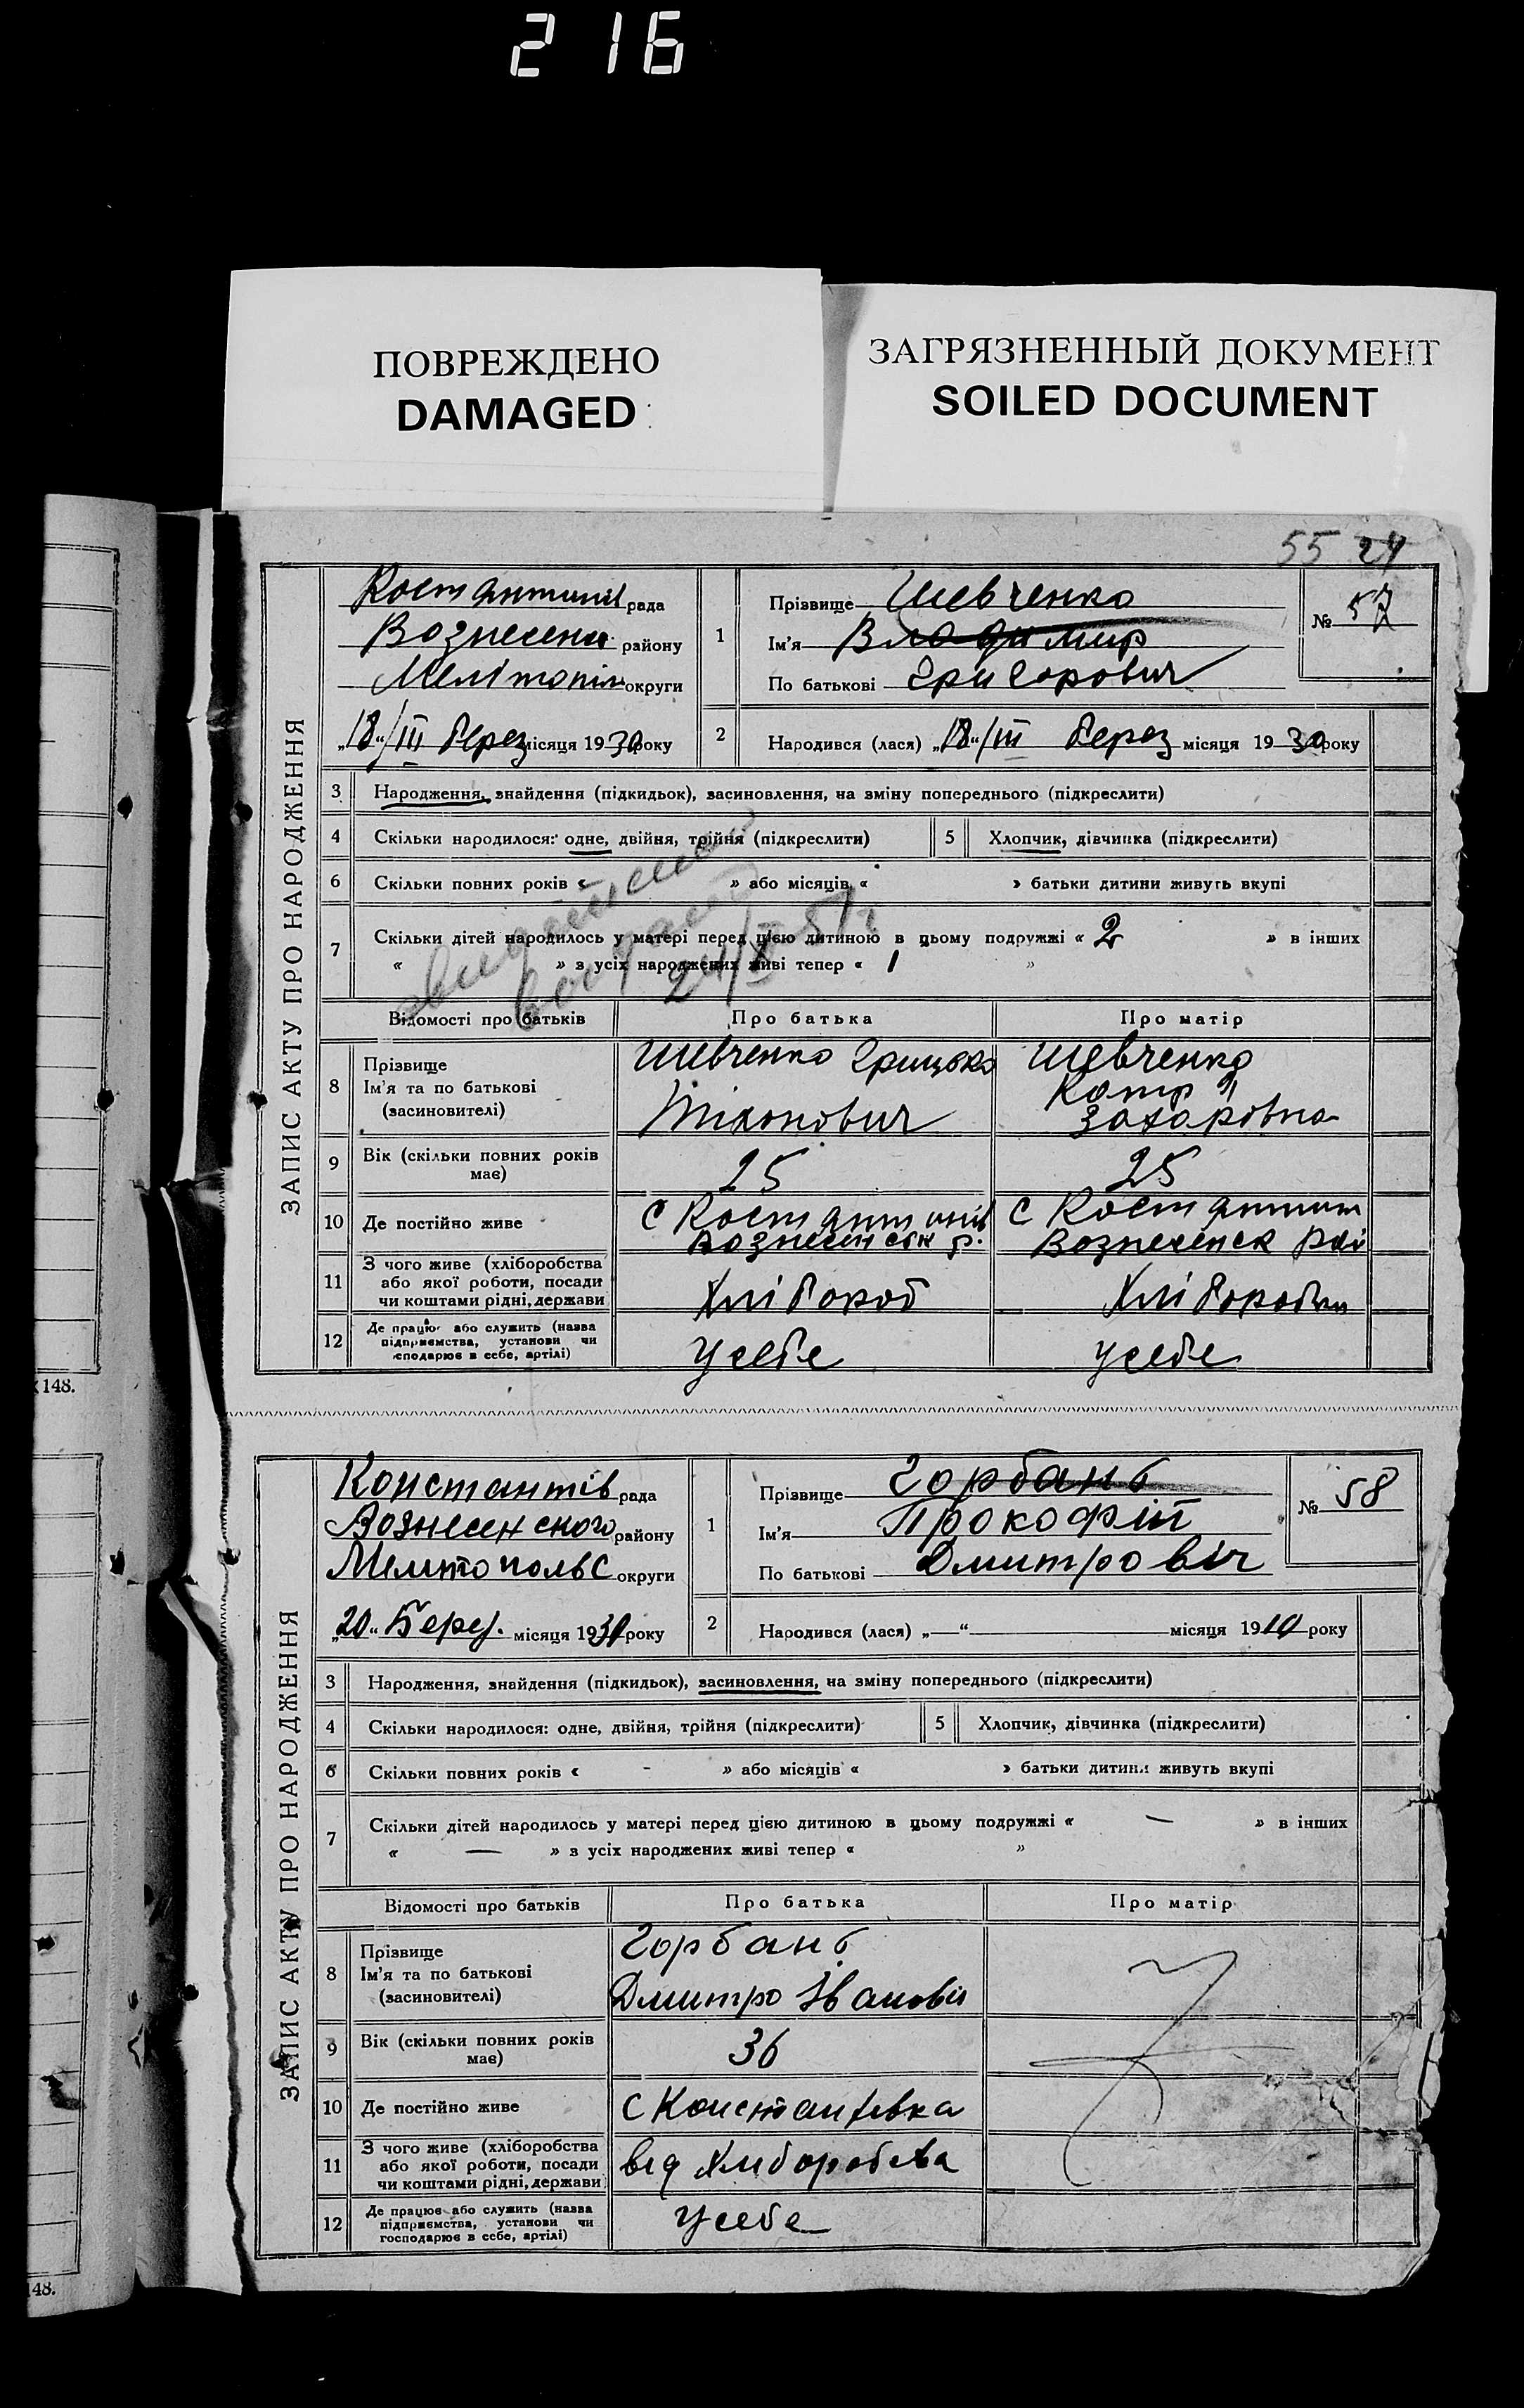 216
ПОВРЕЖДЕНО
DAMAGED
ЗАГРЯЗНЕННЫЙ ДОКУМЕНТ
SOILED DOCUMENT
55 24
ЗАПИС АКТУ ПРО НАРОДЖЕННЯ
Костянтинів рада
Вознесенк району
Мелітопіл округи
„18“/III берез місяця 1930 року
1
Прізвище Шевченко
Ім'я Владимир
По батькові Григорович
№ 57
2
Народився (лася) „18“/III берез місяця 1930 року
3 Народження, знайдення (підкидьок), засиновлення, на зміну попереднього (підкреслити)
4 Скільки народилося: одне, двійня, трійня (підкреслити) 5 Хлопчик, дівчинка (підкреслити)
6 Скільки повних років « » або місяців « » батьки дитини живуть вкупі
7 Скільки дітей народилось у матері перед цією дитиною в цьому подружжі « 2 » в інших
« » з усіх народжених живі тепер « 1 »
Відомості про батьків Про батька Про матір
8 Прізвище
Ім'я та по батькові
(засновителі)
Шевченко Грицько
Тіхонович
Шевченко
Катр
Захаровна
9 Вік (скільки повних років має) 25 25
10 Де постійно живе
С Костянтинів
Вознесенськ р.
С Костянтин
Вознесенск Рай
11 З чого живе (хліборобства
або якої роботи, посади
чи коштами рідні, держави
Хлібороб
Хлібороб
12 Де працює або служить (назва
підприємства, установи чи
господарює в себе, артілі)
Усебе
Усебе
148.
ЗАПИС АКТУ ПРО НАРОДЖЕННЯ
Константів рада
Вознесенского району
Мелитопольс округи
„20“ Берез. місяця 1930 року
1
Прізвище Горбань
Ім'я Прокофій
По батькові Дмитровіч
№ 58
2
Народився (лася) „—“ місяця 1910 року
3 Народження, знайдення (підкидьок), засиновлення, на зміну попереднього (підкреслити)
4 Скільки народилося: одне, двійня, трійня (підкреслити) 5 Хлопчик, дівчинка (підкреслити)
6 Скільки повних років « - » або місяців « » батьки дитини живуть вкупі
7 Скільки дітей народилось у матері перед цією дитиною в цьому подружжі « — » в інших
« — » з усіх народжених живі тепер « »
Відомості про батьків Про батька Про матір
8 Прізвище
Ім'я та по батькові
(засиновителі)
Горбань
Дмитро Іванович
9 Вік (скільки повних років має) 36
10 Де постійно живе С Константівка
11 З чого живе (хліборобства
або якої роботи, посади
чи коштами рідні, держави)
від Хлиборобства
12 Де працює або служить (назва
підприємства, установи чи
господарює в себе, артілі)
Усебе
48.